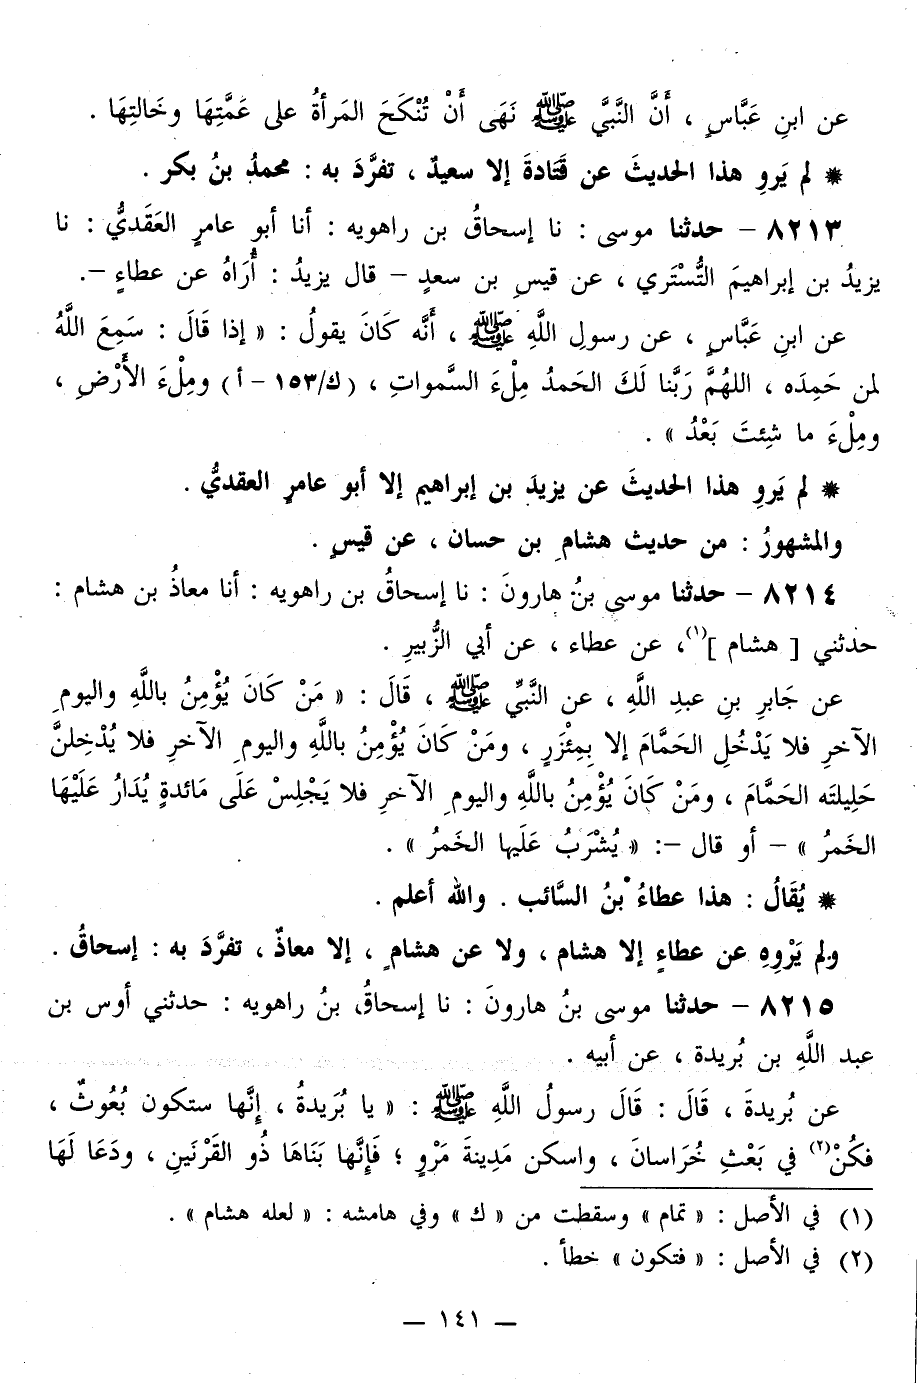 عن ابنِ عَبَّاسٍ ، أَنَّ النَّبيَّ ﷺ نَهَى أَنْ تُنْكَحَ المَرأةُ على عَمَّتِهَا وخَالتِهَا .
* لم يَروِ هذا الحديثَ عن قَتَادةَ إلا سعيدٌ ، تفرَّدَ به : محمدُ بنُ بكر .
٨٢١٣ – حدثنا موسى : نا إسحاقُ بن راهويه : أنا أبو عامرٍ العَقَديُّ : نا
يزيدُ بن إبراهيمَ التُّسْتَري ، عن قيسِ بن سعدٍ – قال يزيدُ : أُرَاهُ عن عطاءٍ –.
عن ابنِ عَبَّاسٍ ، عن رسولِ اللَّهِ ﷺ ، أَنَّه كَانَ يقولُ : « إذا قَالَ : سَمِعَ اللَّهُ
لمن حَمِدَه ، اللهُمَّ رَبَّنا لَكَ الحَمدُ مِلْءَ السَّمواتِ ، (ك/١٥٣ – أ) ومِلْءَ الأَرْضِ ،
ومِلْءَ ما شِئتَ بَعْدُ » .
* لم يَروِ هذا الحديثَ عن يزيدَ بن إبراهيم إلا أبو عامرٍ العقديُّ .
والمشهورُ : من حديث هشامِ بن حسان ، عن قيسٍ .
٨٢١٤ – حدثنا موسى بنُ هارونَ : نا إسحاقُ بن راهويه : أنا معاذُ بن هشام :
حدثني [ هشام ]⁽١⁾، عن عطاء ، عن أبي الزُّبيرِ .
عن جَابرِ بنِ عبدِ اللَّهِ ، عن النَّبيِّ ﷺ ، قَالَ : « مَنْ كَانَ يُؤْمِنُ باللَّهِ واليومِ
الآخرِ فلا يَدْخُلِ الحَمَّامَ إلا بِمِئْزَرٍ ، ومَنْ كَانَ يُؤْمِنُ باللَّهِ واليومِ الآخرِ فلا يُدْخِلنَّ
حَلِيلتَه الحَمَّامَ ، ومَنْ كَانَ يُؤْمِنُ باللَّهِ واليومِ الآخرِ فلا يَجْلِسْ عَلَى مَائدةٍ يُدَارُ عَلَيْهَا
الخَمرُ » – أو قال –: « يُشْرَبُ عَلَيها الخَمرُ » .
* يُقَالُ : هذا عطاءُ بْنُ السَّائب . والله أعلم .
ولم يَرْوِهِ عن عطاءٍ إلا هشام ، ولا عن هشامٍ ، إلا معاذٌ ، تفرَّدَ به : إسحاقُ .
٨٢١٥ – حدثنا موسى بنُ هارونَ : نا إسحاقُ بنُ راهويه : حدثني أوس بن
عبد اللَّهِ بن بُريدة ، عن أبيه .
عن بُريدةَ ، قَالَ : قَالَ رسولُ اللَّهِ ﷺ : « يا بُرَيدةُ ، إِنَّها ستكون بُعُوثٌ ،
فكُنْ⁽٢⁾ في بَعْثِ خُرَاسانَ ، واسكن مَدِينةَ مَرْوٍ ؛ فَإِنَّها بَنَاهَا ذُو القَرْنَينِ ، ودَعَا لَهَا
(١) في الأصل : « تمام » وسقطت من « ك » وفي هامشه : « لعله هشام » .
(٢) في الأصل : « فتكون » خطأ .
– ١٤١ –